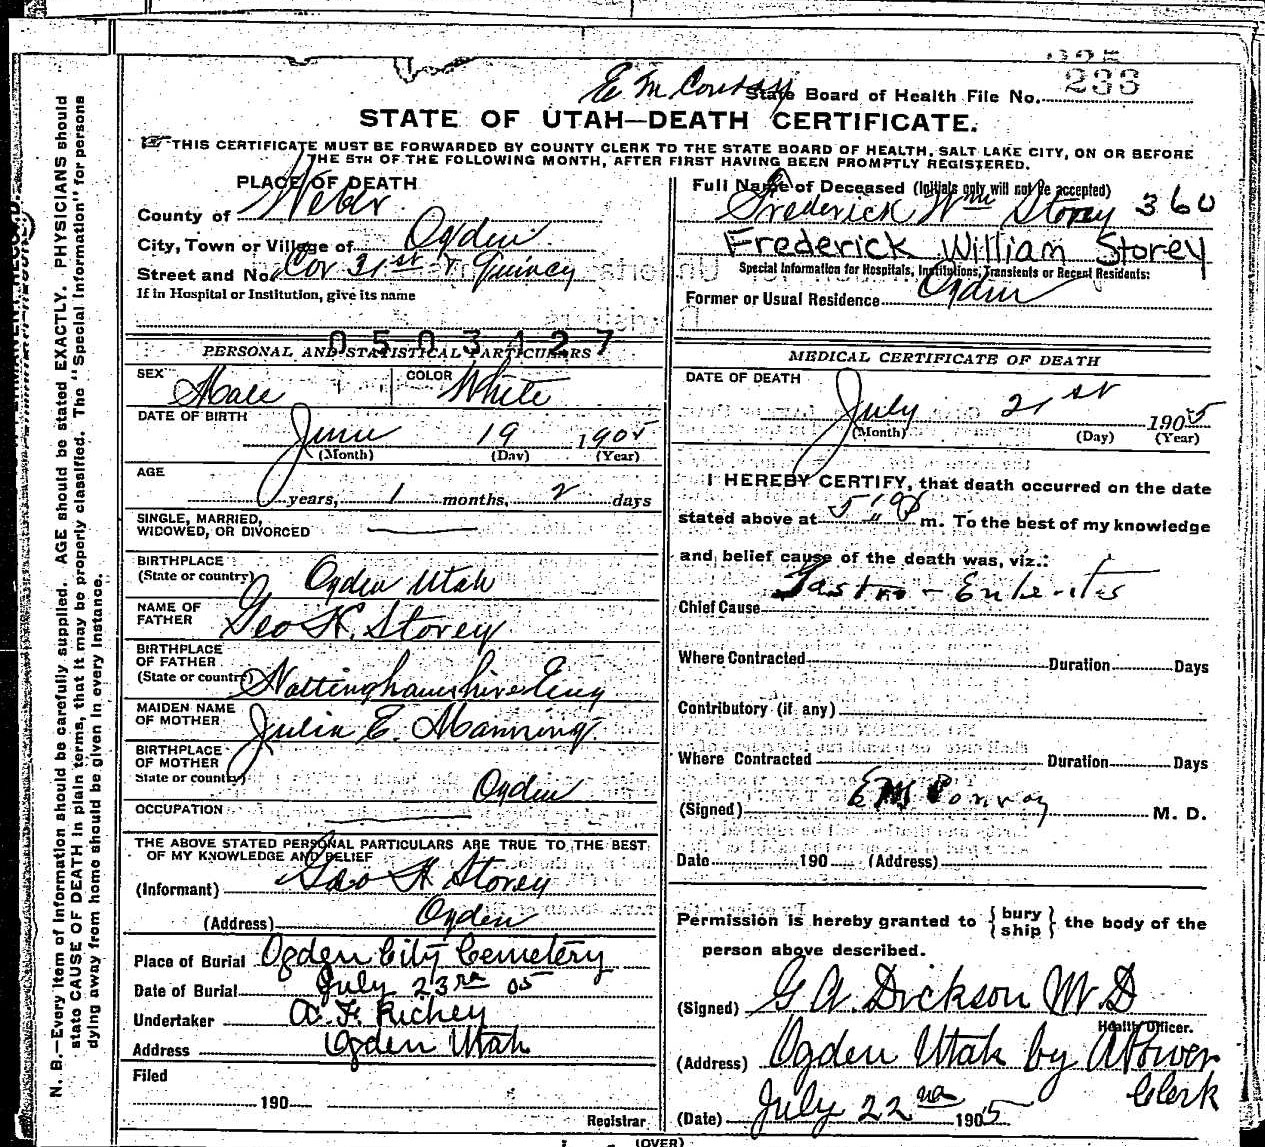 E M Conroy
State Board of Health File No. 233
STATE OF UTAH—DEATH CERTIFICATE.
THIS CERTIFICATE MUST BE FORWARDED BY COUNTY CLERK TO THE STATE BOARD OF HEALTH, SALT LAKE CITY, ON OR BEFORE
THE 5TH OF THE FOLLOWING MONTH, AFTER FIRST HAVING BEEN PROMPTLY REGISTERED.
PLACE OF DEATH
County of Weber
City, Town or Village of Ogden
Street and No. Cor 31st & Quincy
If in Hospital or Institution, give its name
0503427
PERSONAL AND STATISTICAL PARTICULARS
SEX Male COLOR White
DATE OF BIRTH
June 19 1905
(Month) (Day) (Year)
AGE
years, 1 months, 2 days
SINGLE, MARRIED,
WIDOWED, OR DIVORCED
BIRTHPLACE
(State or country) Ogden Utah
NAME OF
FATHER Geo H. Storey
BIRTHPLACE
OF FATHER
(State or country) Nottinghamshire Eng
MAIDEN NAME
OF MOTHER Julia E. Manning
BIRTHPLACE
OF MOTHER
State or country) Ogden
OCCUPATION
THE ABOVE STATED PERSONAL PARTICULARS ARE TRUE TO THE BEST
OF MY KNOWLEDGE AND BELIEF
(Informant) Geo H Storey
(Address) Ogden
Place of Burial Ogden City Cemetery
Date of Burial July 23rd 05
Undertaker A. F. Richey
Address Ogden Utah
Filed
190
Registrar
Full Name of Deceased (Initials only will not be accepted)
Frederick Wm Storey 360
Frederick William Storey
Special Information for Hospitals, Institutions, Transients or Recent Residents:
Former or Usual Residence Ogden
MEDICAL CERTIFICATE OF DEATH
DATE OF DEATH
July 21st 1905
(Month) (Day) (Year)
I HEREBY CERTIFY, that death occurred on the date
stated above at m. To the best of my knowledge
and belief cause of the death was, viz.:
Chief Cause Gastro-Enteritis
Where Contracted Duration Days
Contributory (if any)
Where Contracted Duration Days
(Signed) E M Conroy M. D.
Date 190 (Address)
Permission is hereby granted to {bury
ship} the body of the
person above described.
(Signed) G A. Dickson M. D
Health Officer.
(Address) Ogden Utah by A Power
Clerk
(Date) July 22nd 1905
(OVER)
N. B.—Every item of information should be carefully supplied. AGE should be stated EXACTLY. PHYSICIANS should
state CAUSE OF DEATH in plain terms, that it may be properly classified. The "Special Information" for persons
dying away from home should be given in every instance.